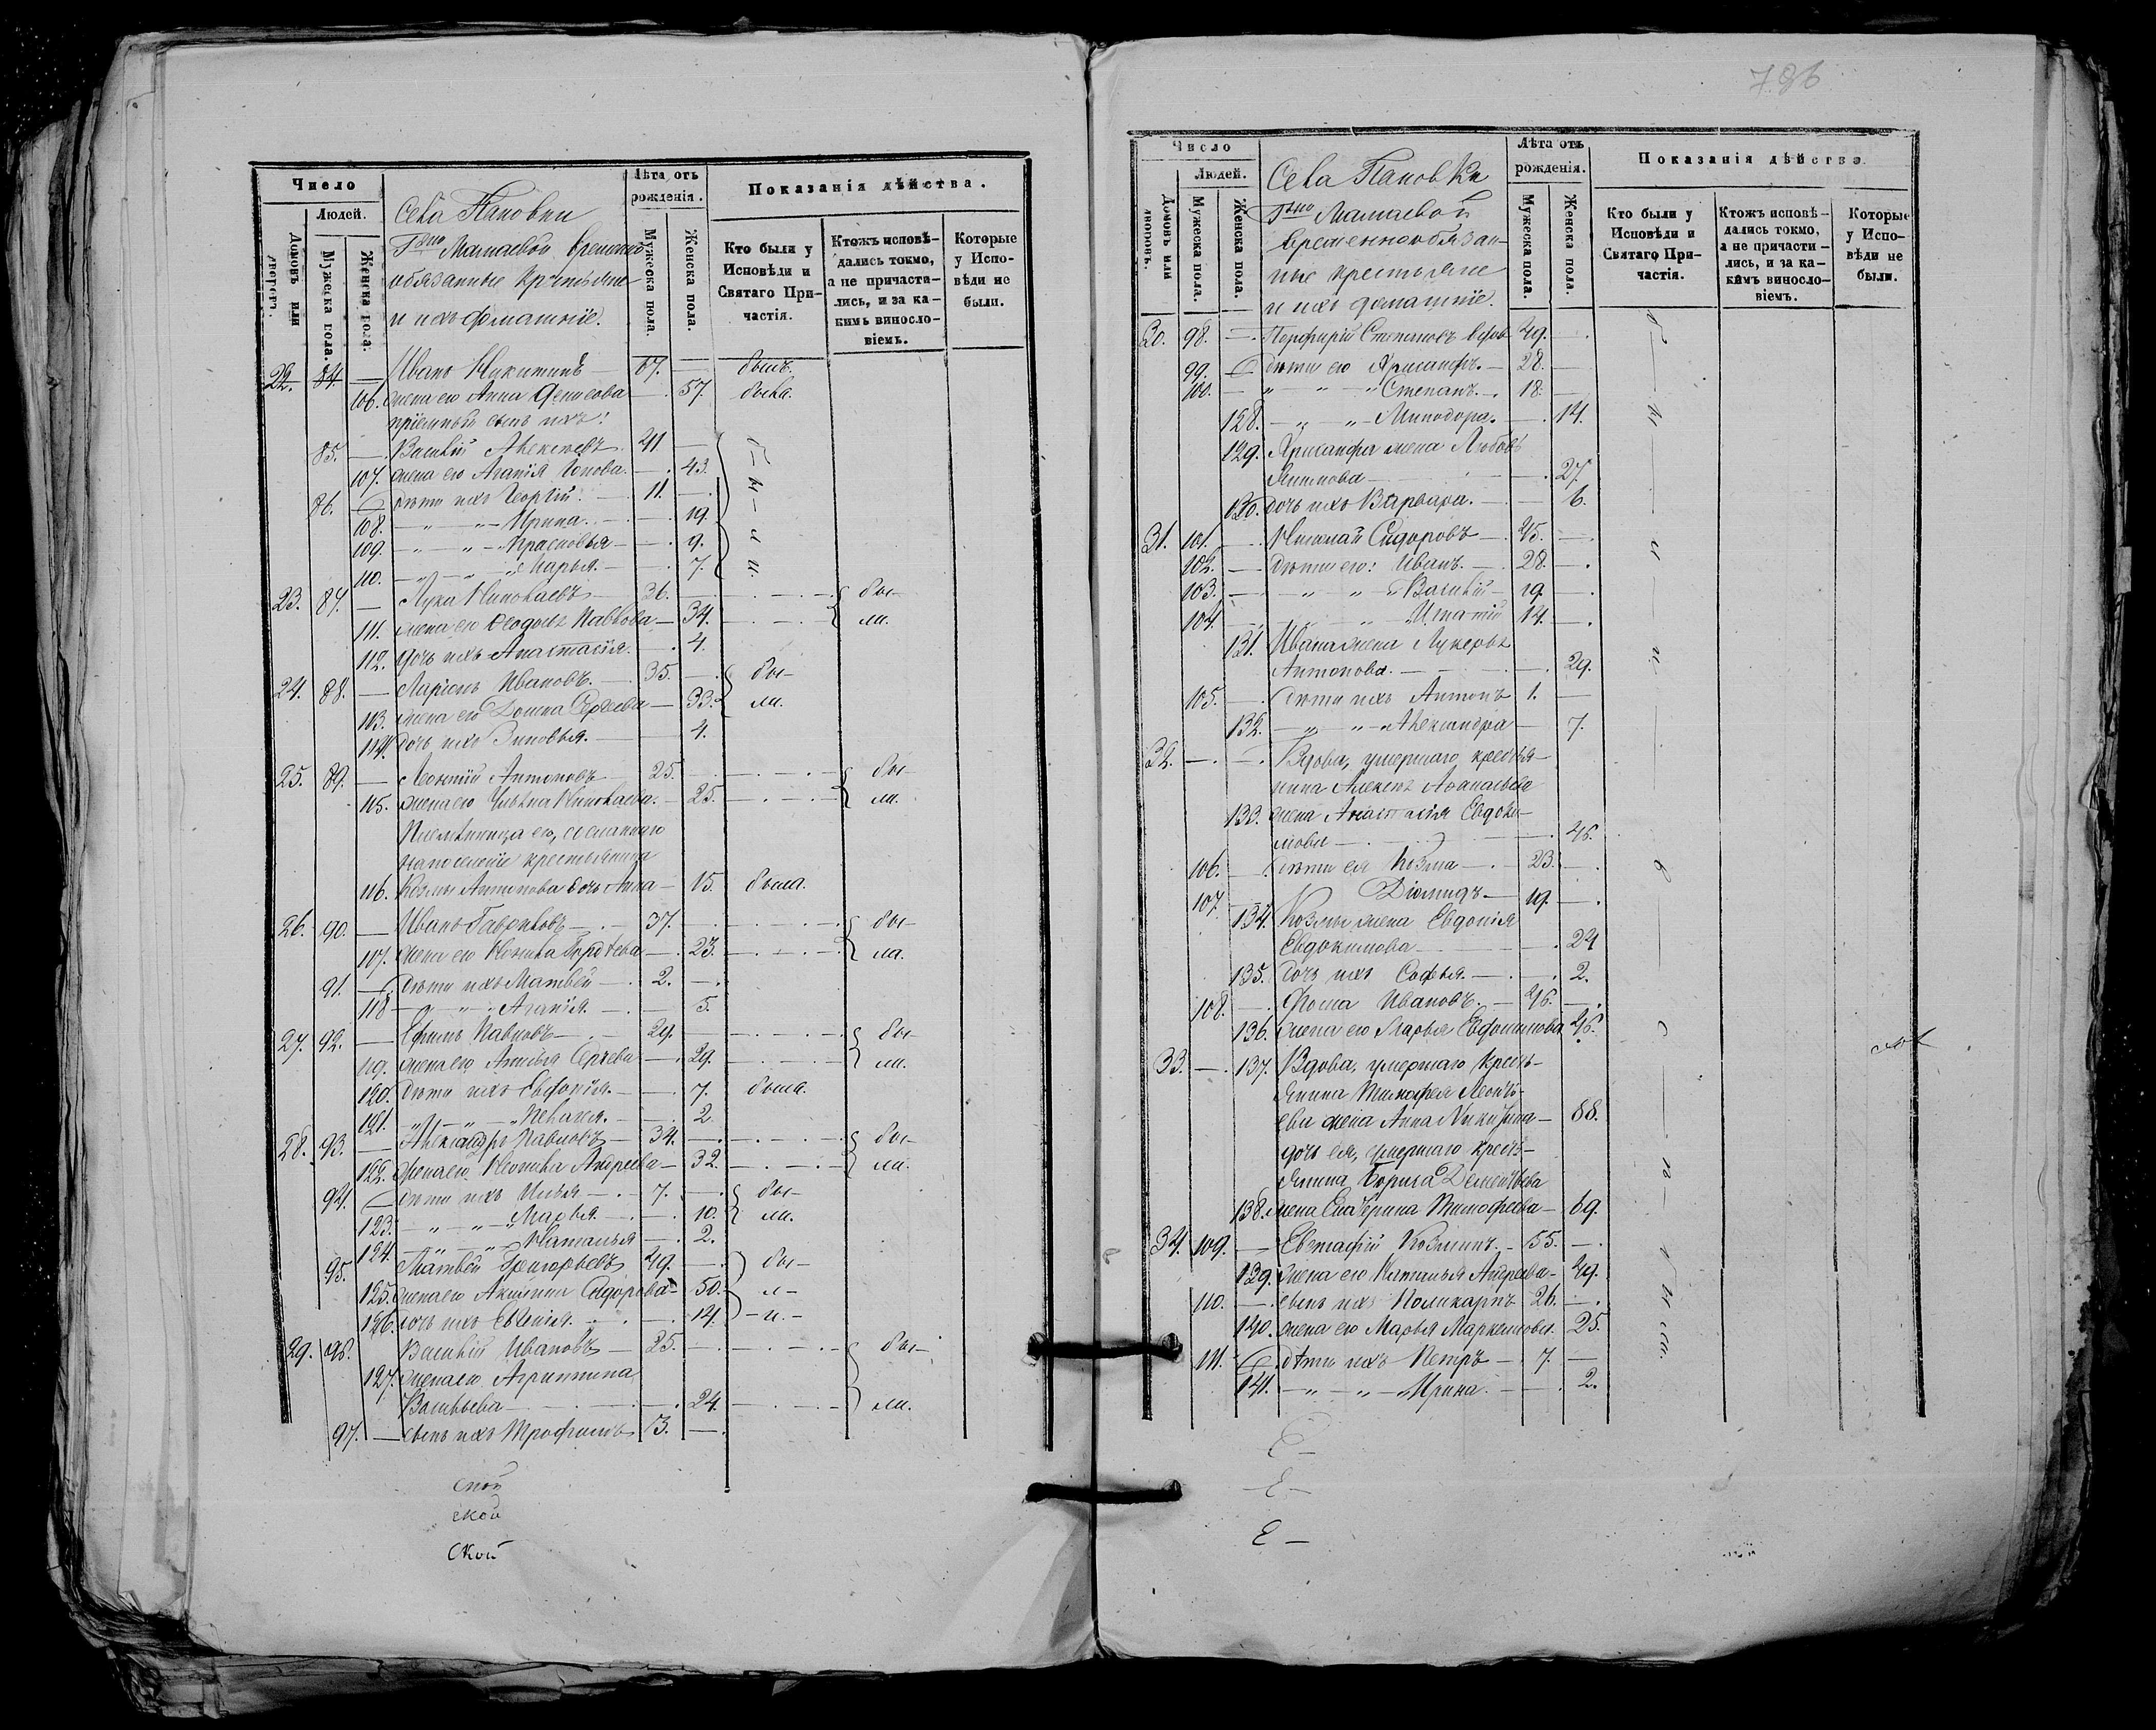 Число
Людей.
Домовъ или дворовъ.
Мужеска пола.
Женска пола.
Села Пановки
Г-жи Мамаевой временно
обязанные крестьяне
и ихъ домашніе.
Лѣта отъ рожденія.
Мужеска пола.
Женска пола.
Показанія дѣйства.
Кто были у Исповѣди и Святаго Причастія.
Ктожъ исповѣдались токмо, а не причастились, и за какимъ винословіемъ.
Которые у Исповѣди не были.
22. 84. — Иванъ Никитинъ — 67. — былъ.
106. жена его Анна Денисова — 57. была.
пріемный сынъ ихъ:
85. — Василій Алексѣевъ 41 —
107. жена его Агапія — 43.
86. — дѣти ихъ Георгій — 11. —
108. — „ — „ — Ирина — 19.
109. — „ — „ — Прасковья — 9.
110. — „ — „ — Марья — 7.
бы-
ли.
23. 87. — Лука Николаевъ 36. — бы-
111. жена его Ѳеодосья Павлова — 34. — ли.
112. дочь ихъ Анастасія. — 4.
24. 88. — Ларіонъ Ивановъ. — 35. — бы-
113. жена его Домна Сергѣева — 33. ли.
114. дочь ихъ Зиновья. — 4.
25. 89. — Леонтій Антоновъ 25. — бы-
115. жена его Ульяна Николаева. — 25. — ли.
Племянница его, сосланнаго
на поселеніе крестьянина
116. Козмы Антипова дочь Анна — 15. была.
26. 90. — Иванъ Гавриловъ — 37. — бы-
117. жена его — 23. — ли.
91. — дѣти ихъ Матвей — 2. —
118 — „ — „ Агапія. — 5.
27. 92. — Ефимъ Павловъ — 29. — бы-
119. жена его Сергеева — 29. — ли.
120. дѣти ихъ Евфонія. — 7. была.
121. „ — „ — Пелагея. — 2.
28. 93. — Александръ Павловъ — 34. — бы-
122. жена его Андреева — 32. — ли.
94. — дѣти ихъ Илья — 7. — бы-
123. — „ — „ Марья. — 10. ли.
124. — „ — „ Наталья — 2.
95. Матвей Григорьевъ 49. — бы-
125. жена его Акилина Сидорова — 50. л-
126. дочь ихъ Евгенія. — 14. — и. —
29. 96. Василій Ивановъ — 25. — бы-
127. жена его Агриппина
Васильева — 24. — ли.
97. — сынъ ихъ Трофимъ 3. —
ской
ской
ской
796
Число
Людей.
Домовъ или дворовъ.
Мужеска пола.
Женска пола.
Села Пановки
Г-жи Мамаевой
временнообязан-
ные крестьяне
и ихъ домашніе.
Лѣта отъ рожденія.
Мужеска пола.
Женска пола.
Показанія дѣйства.
Кто были у Исповѣди и Святаго Причастія.
Ктожъ исповѣдались токмо, а не причастились, и за какимъ винословіемъ.
Которые у Исповѣди не были.
30. 98. — Порфирій Степановъ 49. —
99. — дѣти его Хрисанфъ. — 28. —
100. — „ „ Степанъ. — 18. —
128. — „ — „ Минодора. — 14.
129. Хрисанфа жена Любовь
27.
130. дочь ихъ Варвара. — 6.
31. 101. — Николай Сидоровъ — 45. —
102. — дѣти его: Иванъ. — 28. —
103. — „ „ Василій — 19. —
104. — „ „ Игнатій 14. —
131. Ивана жена Лукерья
Антонова. — 29.
105. — дѣти ихъ Антонъ 1. —
132. — „ „ Александра — 7.
32. — Вдова, умершаго крестья-
нина Алексея Аѳанасьева
133. жена Анастасія Евдоки-
мова — 46.
106. — дѣти ея Козма — 23. —
107. — Діомидъ — 19. —
134. Козмы жена Евдокія
Евдокимова — 24
135. дочь ихъ Софья. — 2.
108. — Фома Ивановъ. — 46. —
136. жена его Марья 46.
33. — 137. Вдова, умершаго кресть-
янина Тимофея Леонть-
ева жена Анна Никитина — 88.
дочь ея, умершаго кресть-
янина Бориса Дементьева
138. жена Екатерина Тимофеева — 69.
34. 109. — Евстафій Козминъ. — 55. —
139. жена его Наталья Андреева — 49.
110. — сынъ ихъ Поликарпъ 26. —
140. жена его Марья Маркелова. 25.
111. — дѣти ихъ Петръ — 7. —
141. — „ — „ — Ирина. — 2.
б
ы
л
и.
Е —
Е —
Е —